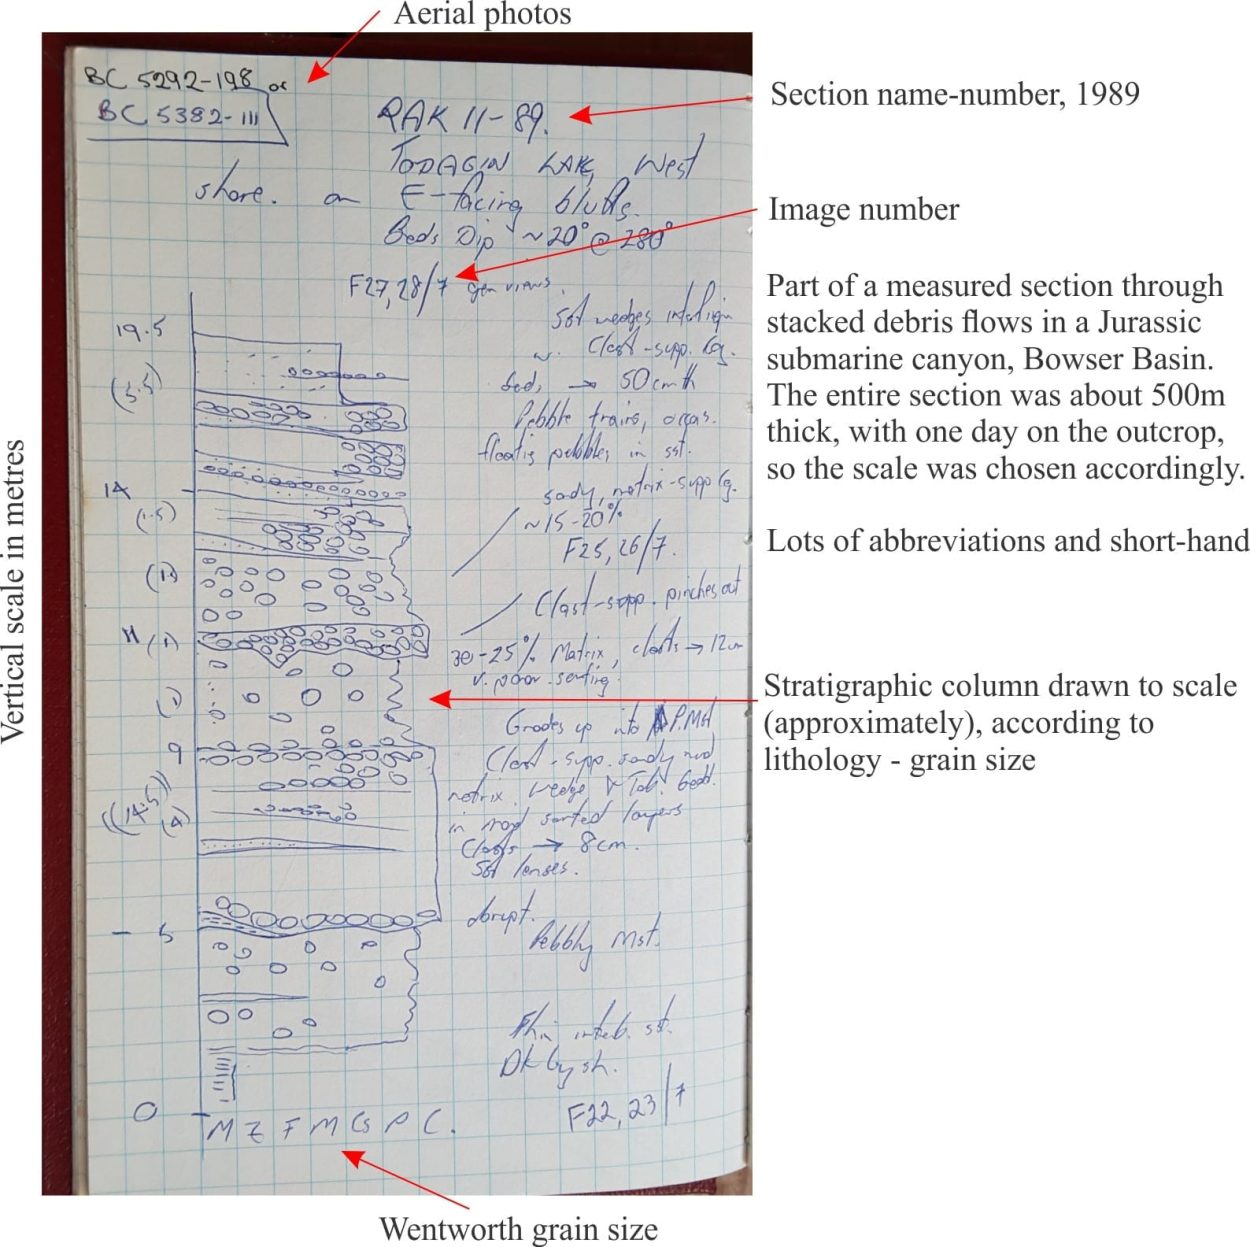 Aerial photos
BC 5292-198 or
BC 5382-111
RAK 11-89.
Section name-number, 1989
TODAGIN LAKE, West
shore. on E-facing bluffs.
Image number
Beds Dip ~20° @ 280°
F27,28/7 gen views.
Part of a measured section through
stacked debris flows in a Jurassic
submarine canyon, Bowser Basin.
The entire section was about 500m
thick, with one day on the outcrop,
so the scale was chosen accordingly.
Lots of abbreviations and short-hand
Vertical scale in metres
Sst wedges
Clast-supp. Cg.
19.5
beds → 50cm th
Pebble trains, occas.
floating pebbles in sst.
14
(1.5)
sandy, matrix-supp Cg.
~15-20%
F25, 26/7.
(1)
Clast-supp. pinches out
11 (1)
-25% Matrix, clasts → 12cm
v. poor sorting.
(1)
Stratigraphic column drawn to scale
(approximately), according to
lithology - grain size
Grades up into P.Mst
9
Clast-supp. sandy mud
matrix. Wedge & Tab. bedd.
((14.5))
(4)
in mod sorted layers
Clasts → 8cm.
Sst lenses.
abrupt.
5
Pebbly Mst.
Thin interb. sst.
Dk Gy sh.
F22, 23/7
0
M Z F M Cs P C.
Wentworth grain size